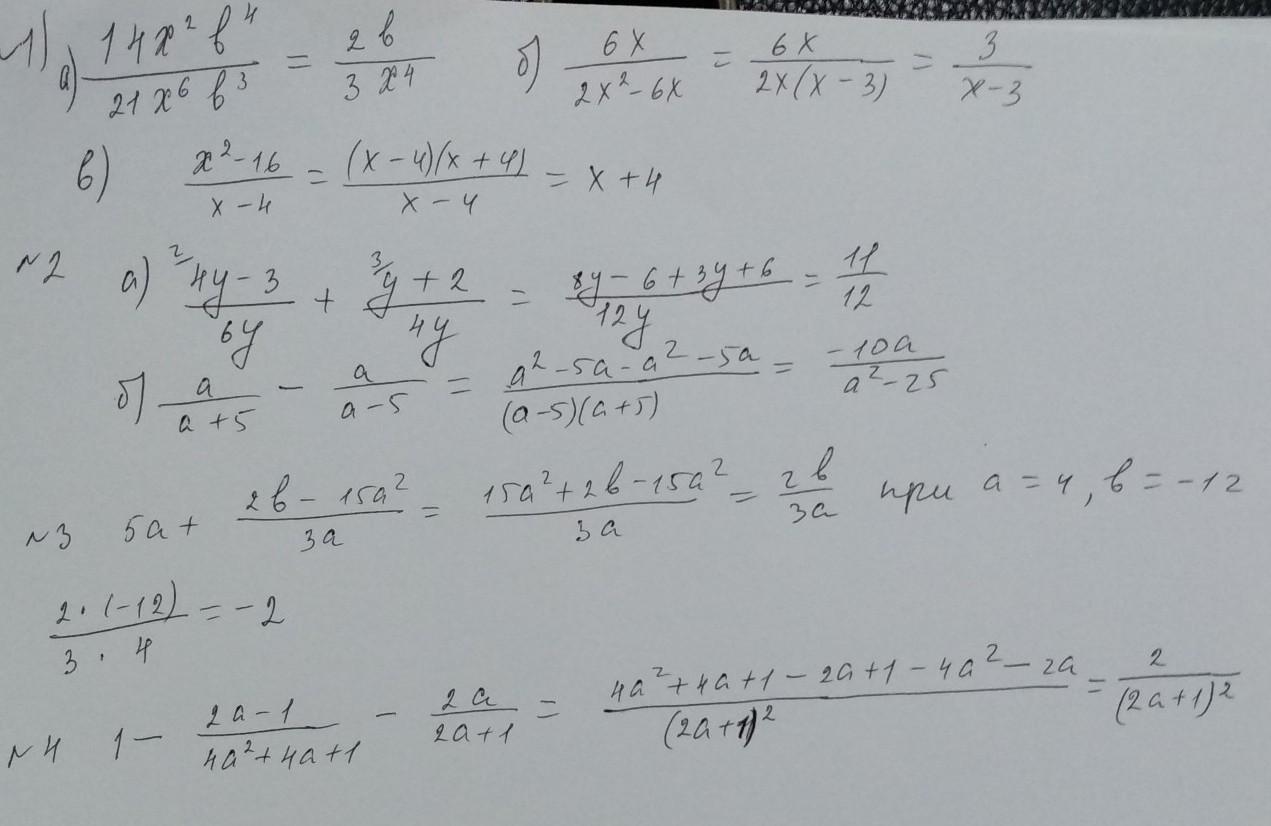 1) а) 14x²b⁴/21x⁶b³ = 2b/3x⁴ б) 6x/2x²-6x = 6x/2x(x-3) = 3/x-3
в) x²-16/x-4 = (x-4)(x+4)/x-4 = x+4
№2 а) ²/4y-3/6y + ³/y+2/4y = 8y-6+3y+6/12y = 11/12
б) a/a+5 - a/a-5 = a²-5a-a²-5a/(a-5)(a+5) = -10a/a²-25
№3 5a + 2b-15a²/3a = 15a²+2b-15a²/3a = 2b/3a при a=4, b=-12
2·(-12)/3·4 = -2
№4 1 - 2a-1/4a²+4a+1 - 2a/2a+1 = 4a²+4a+1-2a+1-4a²-2a/(2a+1)² = 2/(2a+1)²